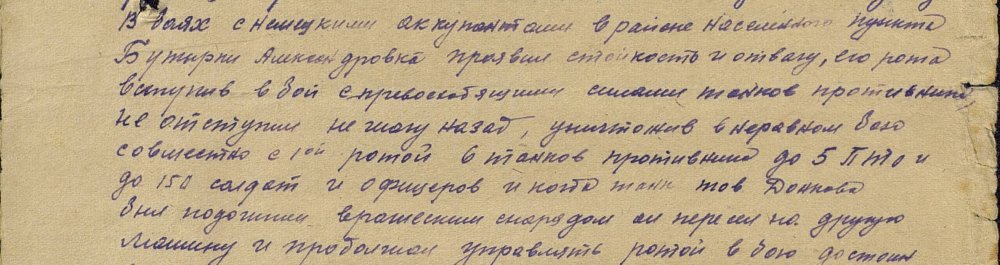 В боях с немецкими аккупантами в районе населенного пункта
Бутырки Александровка проявил стойкость и отвагу, его рота
вступив в бой с превосходящими силами танков противника
не отступил не шагу назад, уничтожив в неравном бою
совместно с 1ой ротой 6 танков противника до 5 ПТО и
до 150 солдат и офицеров и когда танк тов Донкова
был подожжен вражеским снарядом он пересел на другую
машину и продолжал управлять ротой в бою достоин